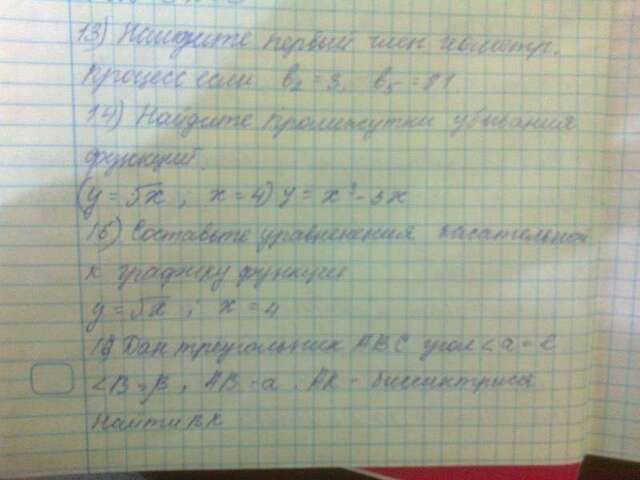 13) Найдите первый член геометр.
Процесс если b₂ = 3, b₅ = 81
14) Найдите Промежутки убывания
функций.
(y = √x ; x = 4) y = x³ - 3x
16) Составьте уравнения касательной
к графику функции
y = √x ; x = 4
Дан треугольник ABC угол ∠a = L
∠B = β, AB = a, AK - биссиктриса
Найти BK